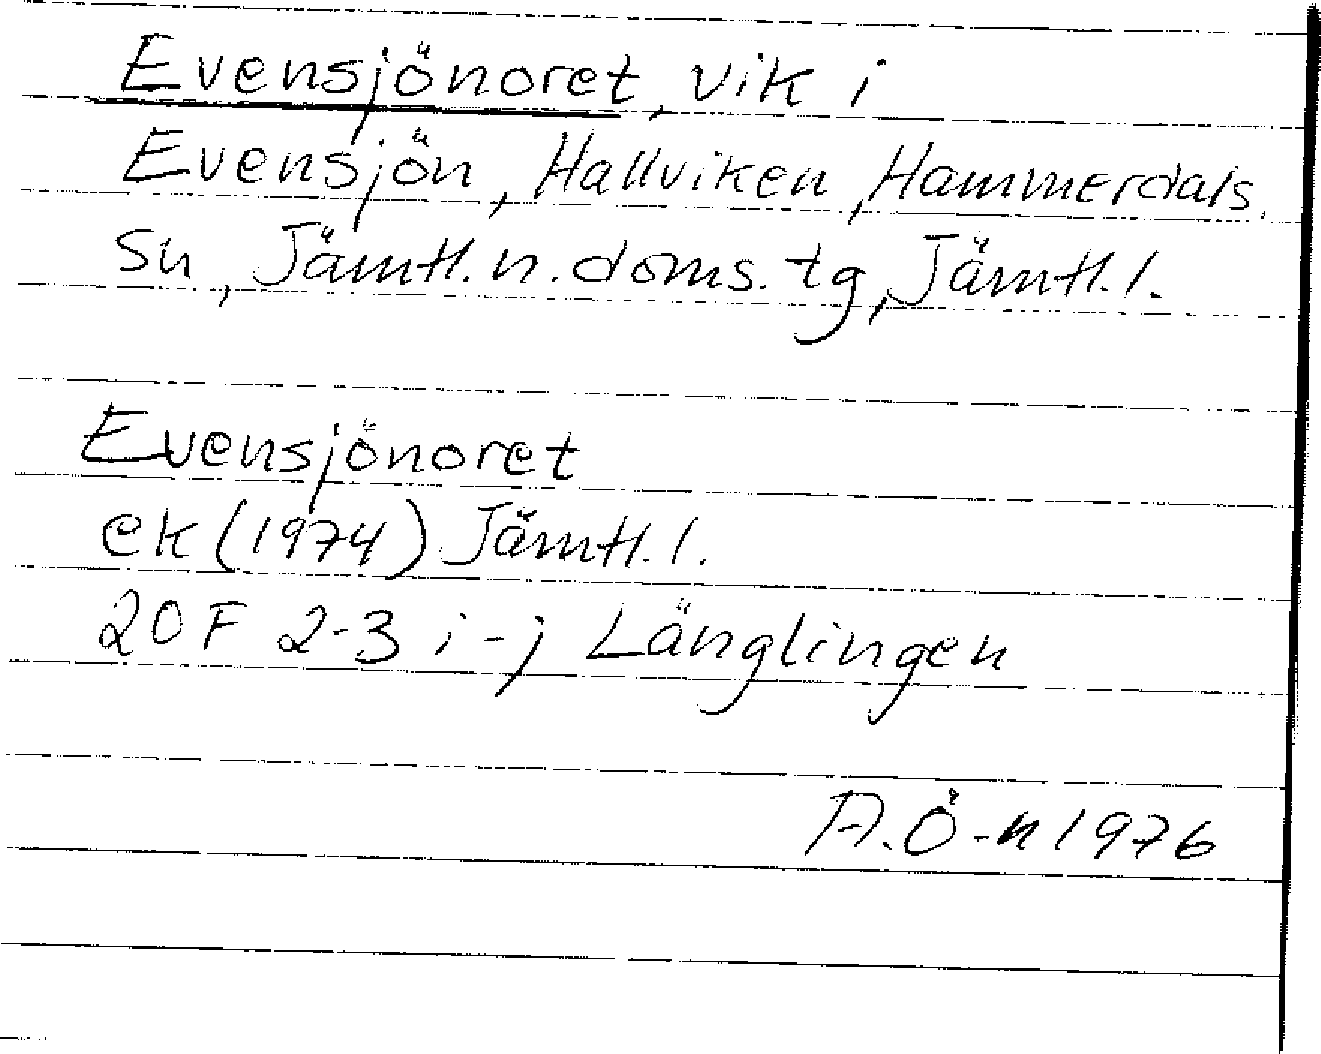 Evensjönoret, vik i
Evensjön, Hallviken, Hammerdals
sn, Jämtl. n. doms. tg, Jämtl. l.
Evensjönoret
ek (1974) Jämtl. l.
20 F 2-3 i-j Länglingen
A. Ö-n 1976